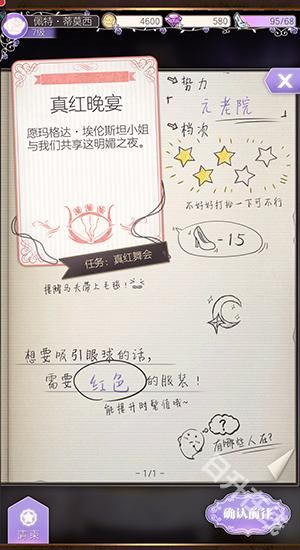 佩特·蒂莫西
7级
4600
580
95/68
真红晚宴
愿玛格达·埃伦斯坦小姐
与我们共享这明媚之夜。
任务：真红舞会
势力
元老院
档次
不好好打扮一下可不行
-15
提醒马夫带上毛毯！
想要吸引眼球的话，
需要 红色 的服装！
能提升附整值哦~
?
有哪些人在？
1/1
请柬
确认前往